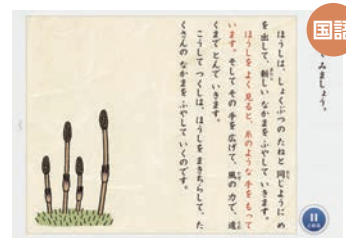 国語
みましょう。
ほうしは、しょくぶつの たねと 同じように め
を出して、新しい なかまを ふやして いきます。
ほうしを よく 見ると、糸のような 手を もって
います。そして その 手を 広げて、風の 力で、遠
くまで とんで いきます。
こうして つくしは、ほうしを まきちらして、た
くさんの なかまを ふやして いくのです。